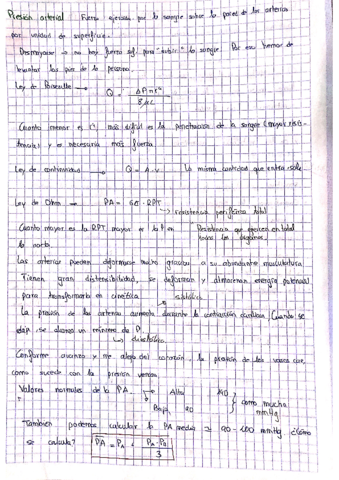 Presión arterial Fuerza ejercida por la sangre sobre la pared de las arterias
por unidad de superficie.
Desmayarse → no hay fuerza sufi. para "subir" la sangre. Por eso hemos de
levantar los pies de la persona.
Ley de Poiseuille → Q = ΔPπr⁴
8μL
Cuanto menor es r, más difícil es la penetración de la sangre (mayor resis-
tencia) y es necesaria más fuerza
Ley de continuidad → Q = A·v La misma cantidad que entra sale
Ley de Ohm → PA = GC · RPT
→ resistencia periférica total
Cuanto mayor es la RPT, mayor es la P en Resistencia que ejercen en total
la aorta. todos los órganos.
Las arterias pueden deformarse mucho gracias a su abundante musculatura
Tienen gran distensibilidad, se deforman y almacenan energía potencial
para transformarla en cinética. sistólica
La presión de las arterias aumenta durante la contracción cardiaca. Cuando se
relaja, se alcanza un mínimo de P.
→ diastólica
Conforme avanzo y me alejo del corazón, la presión de los vasos cae,
como sucede con la presión venosa
Valores normales de la PA Alta 140
Baja 90 } como mucho
mmHg
También podemos calcular la PA media ≈ 90 - 100 mmHg ¿Cómo
se calcula?
3